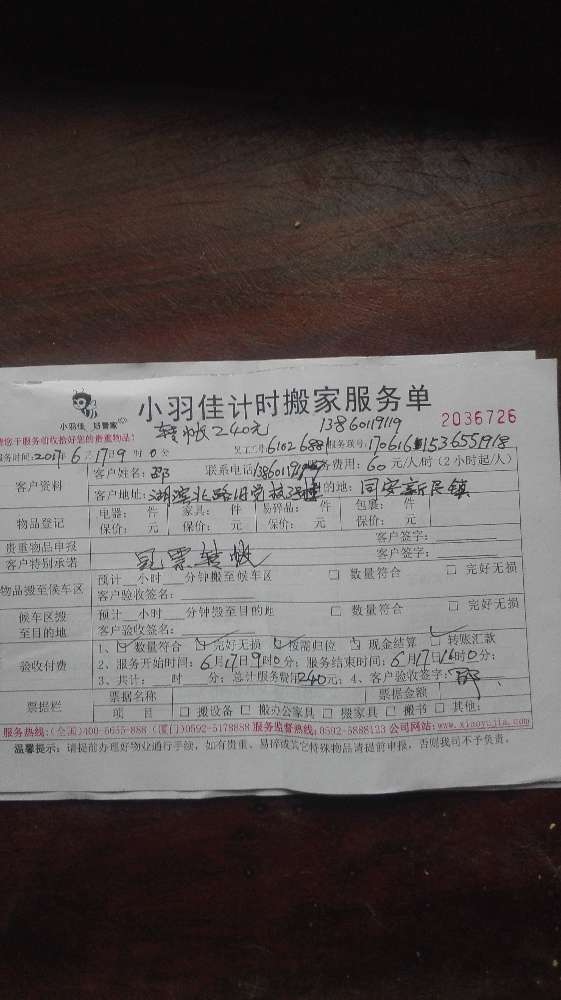 小羽佳 好管家
小羽佳计时搬家服务单
转帐240元 13860119119 2036726
请您于服务前收拾好您的贵重物品!
服务时间:2017年6月17日9时0分 员工工号6102688 服务预号:170616 1536551918
客户资料 客户姓名:邵 联系电话13860119119 服务费用:60元/人/时(2小时起/人)
客户地址:湖滨北路旧党校 目的地:同安新民镇
物品登记 电器: 件 家具: 件 易碎品: 件 包裹: 件
保价: 元 保价: 元 保价: 元 保价: 元
贵重物品申报 客户签字:
客户特别承诺 见票转帐 客户签字:
物品搬至候车区 预计 小时 分钟搬至候车区 □ 数量符合 □ 完好无损
客户验收签名:
候车区搬至目的地 预计 小时 分钟搬至目的地 □ 数量符合 □ 完好无损
客户验收签名:
验收付费 1、☑数量符合 ☑完好无损 ☑按需归位 □现金结算 ☑转账汇款
2、服务开始时间:6月17日9时0分;服务结束时间:6月17日16时0分;
3、共计: 时 分;总计服务费用240元;4、客户验收签字:邵
票据栏 票据名称 票据金额
项 目 □搬设备 □搬办公家具 □搬家具 □搬书 □其他:
服务热线:(全国)400-5655-888 (厦门)0592-5178888 服务监督热线:0592-5888123 公司网站:www.xiaoyujia.com
温馨提示:请提前办理好物业通行手续,如有贵重、易碎或其它特殊物品请提前申报,否则我司不予负责。